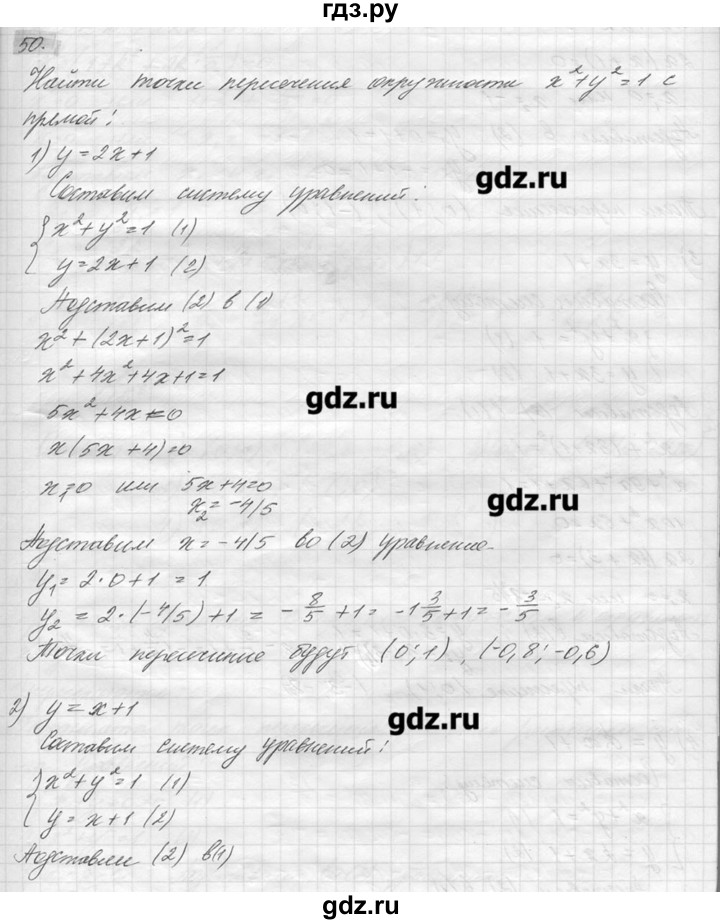 гдз.ру
50.
Найти точки пересечения окружности x²+y²=1 с
прямой:
1) y=2x+1
Составим систему уравнений:
gdz.ru
{ x²+y²=1 (1)
y=2x+1 (2)
Подставим (2) в (1)
x²+(2x+1)²=1
x²+4x²+4x+1=1
gdz.ru
5x²+4x=0
x(5x+4)=0
x₁=0 или 5x+4=0
x₂=-4/5
gdz.ru
Подставим x=-4/5 во (2) уравнение
y₁=2·0+1=1
y₂=2·(-4/5)+1=-8/5+1=-1 3/5+1=-3/5
Точки пересечение будут (0;1), (-0,8;-0,6)
2) y=x+1
gdz.ru
Составим систему уравнений:
{ x²+y²=1 (1)
y=x+1 (2)
Подставим (2) в(1)
gdz.ru